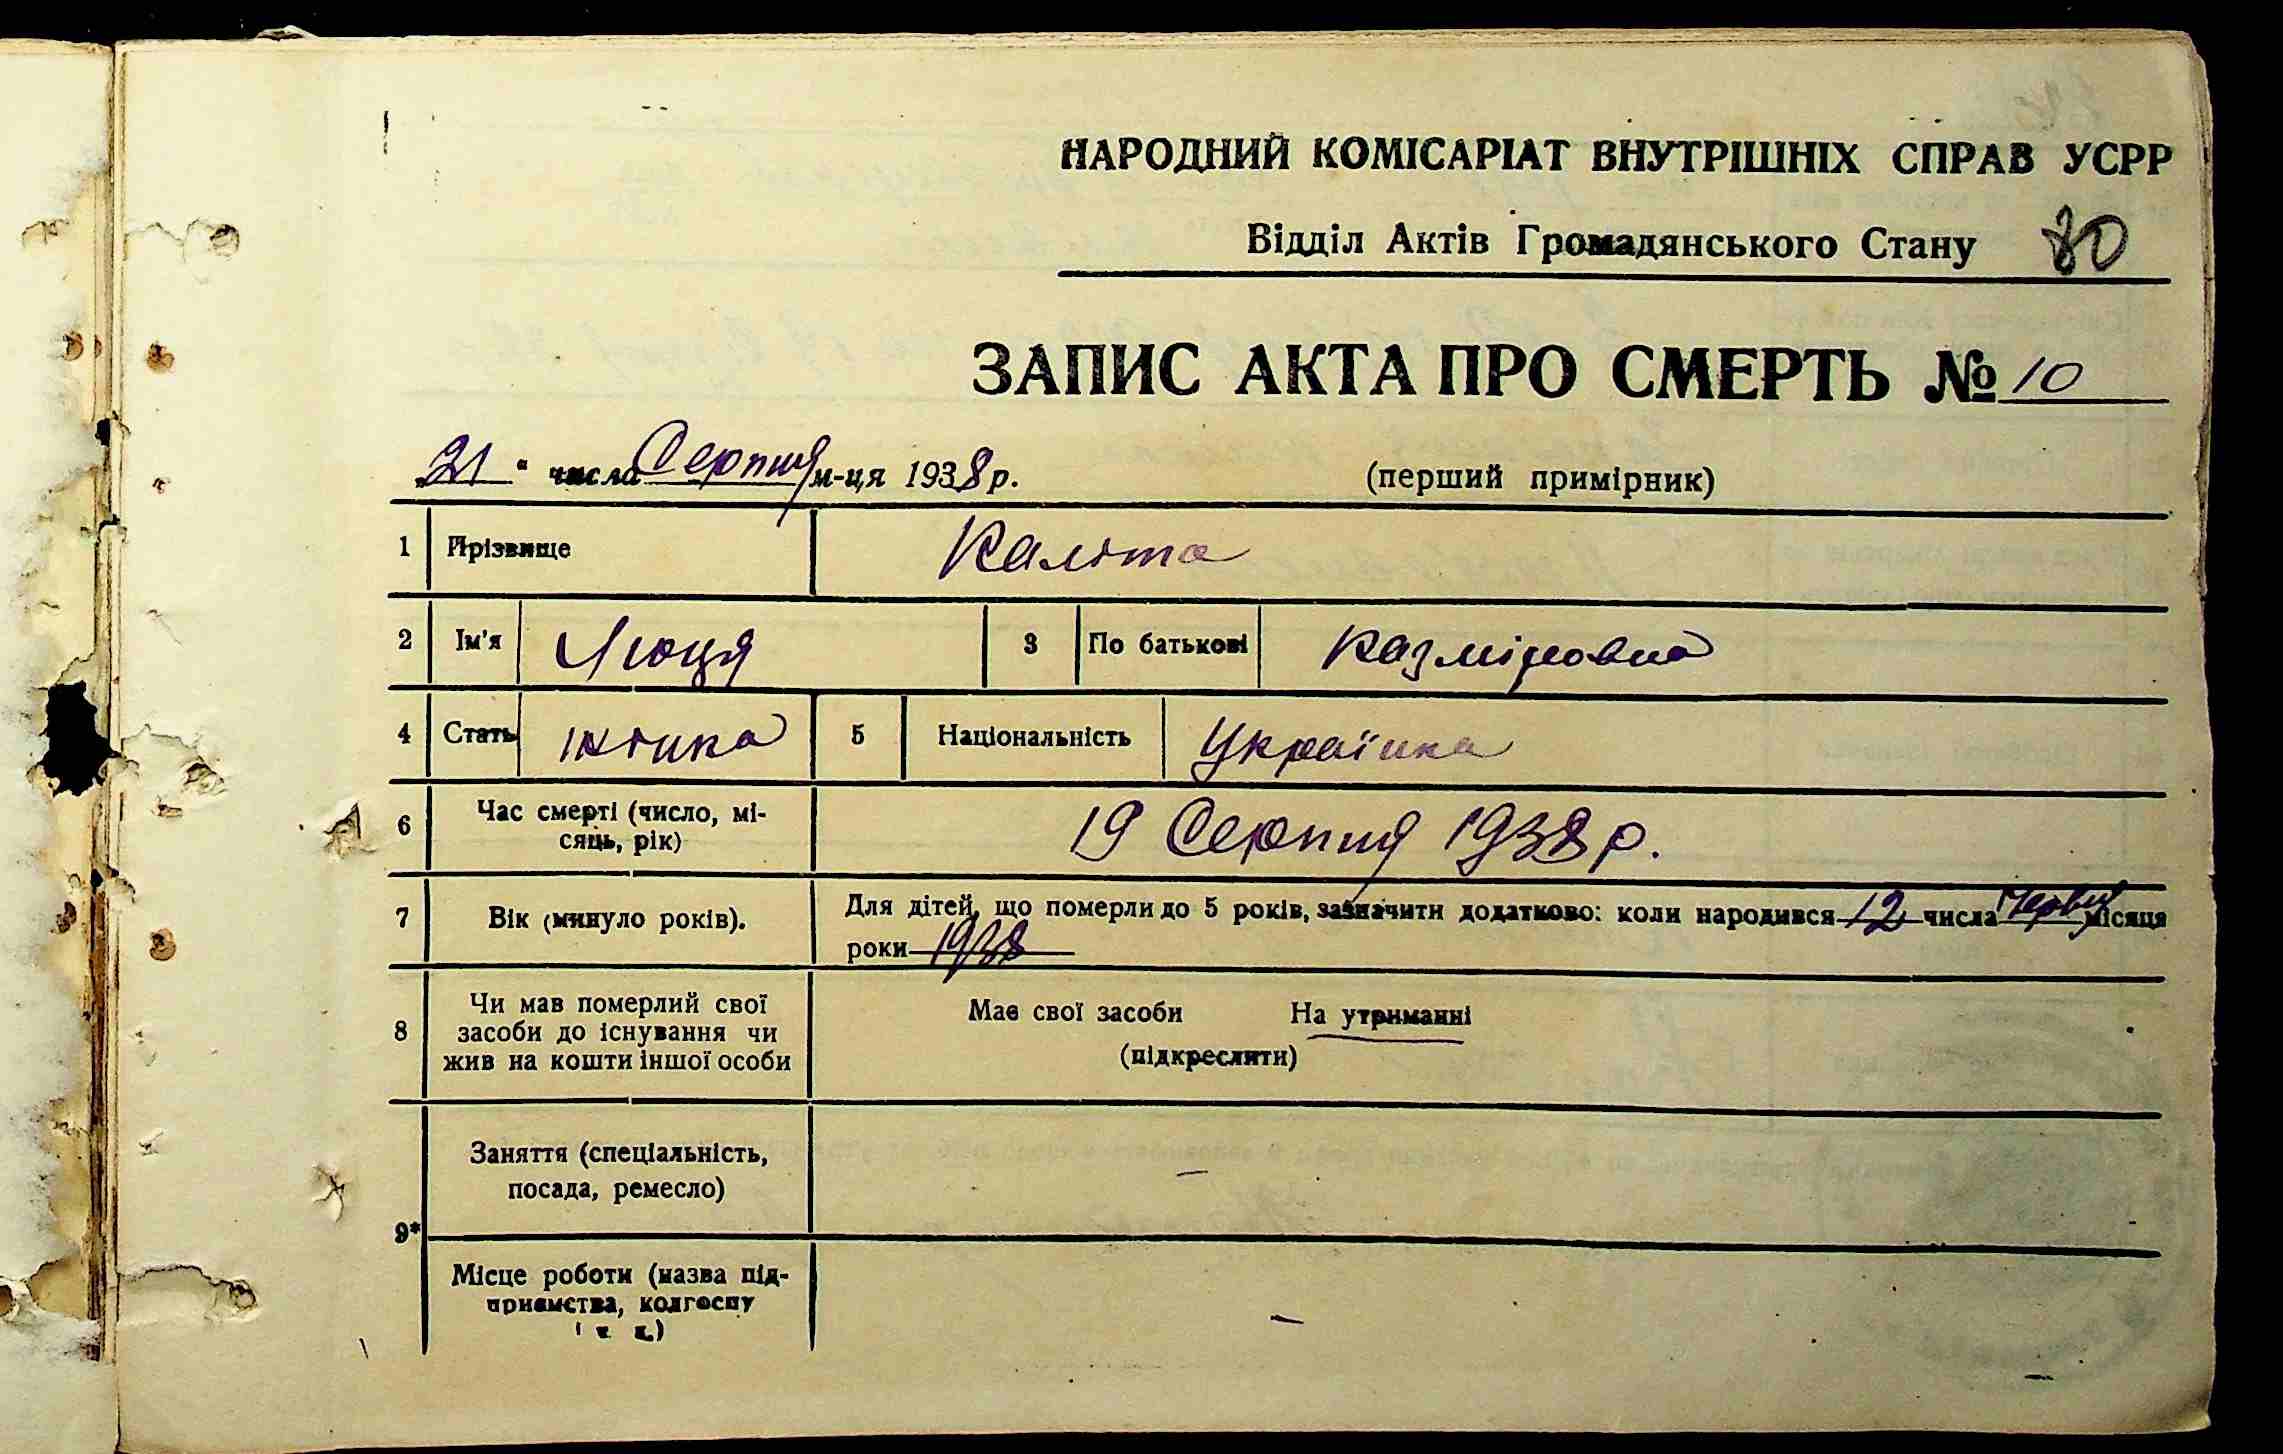 НАРОДНИЙ КОМІСАРІАТ ВНУТРІШНІХ СПРАВ УСРР
Відділ Актів Громадянського Стану 80
ЗАПИС АКТА ПРО СМЕРТЬ № 10
„21“ числа Серпня м-ця 1938 р. (перший примірник)
1 Прізвище Каліта
2 Ім'я Люця 3 По батькові Казміровна
4 Стать жінка 5 Національність Українка
6 Час смерті (число, мі-
сяць, рік) 19 Серпня 1938 р.
7 Вік (минуло років). Для дітей, що померли до 5 років, зазначити додатково: коли народився 12 числа Червня місяця
роки 1938
8 Чи мав померлий свої
засоби до існування чи
жив на кошти іншої особи
Має свої засоби На утриманні
(підкреслити)
9* Заняття (спеціальність,
посада, ремесло) —
Місце роботи (назва під-
приємства, колгоспу
і т. д.) —